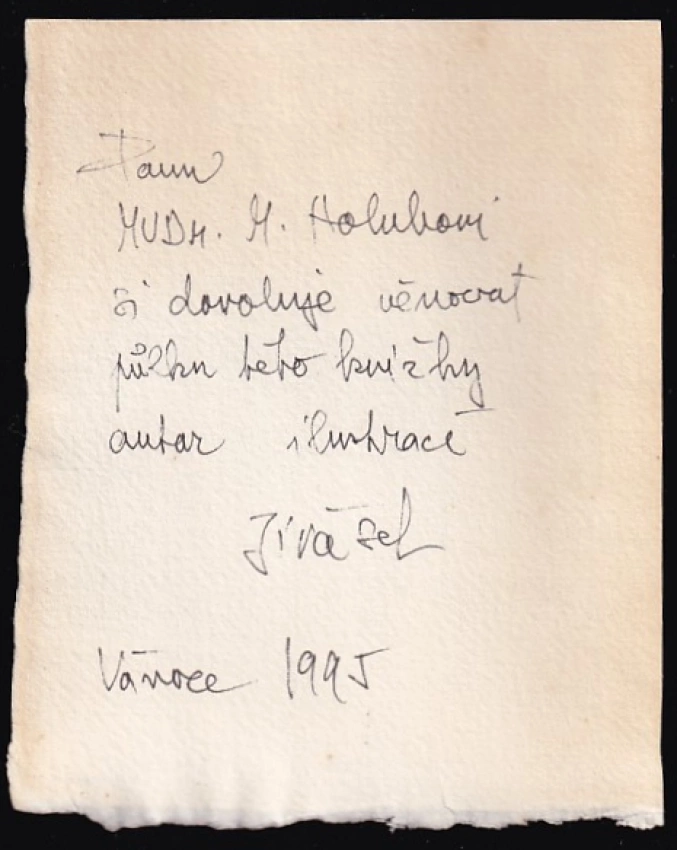 Panu
MUDr. M. Holubovi
si dovoluje věnovat
půlku této knížky
autor ilustrací
Jirásek
Vánoce 1995